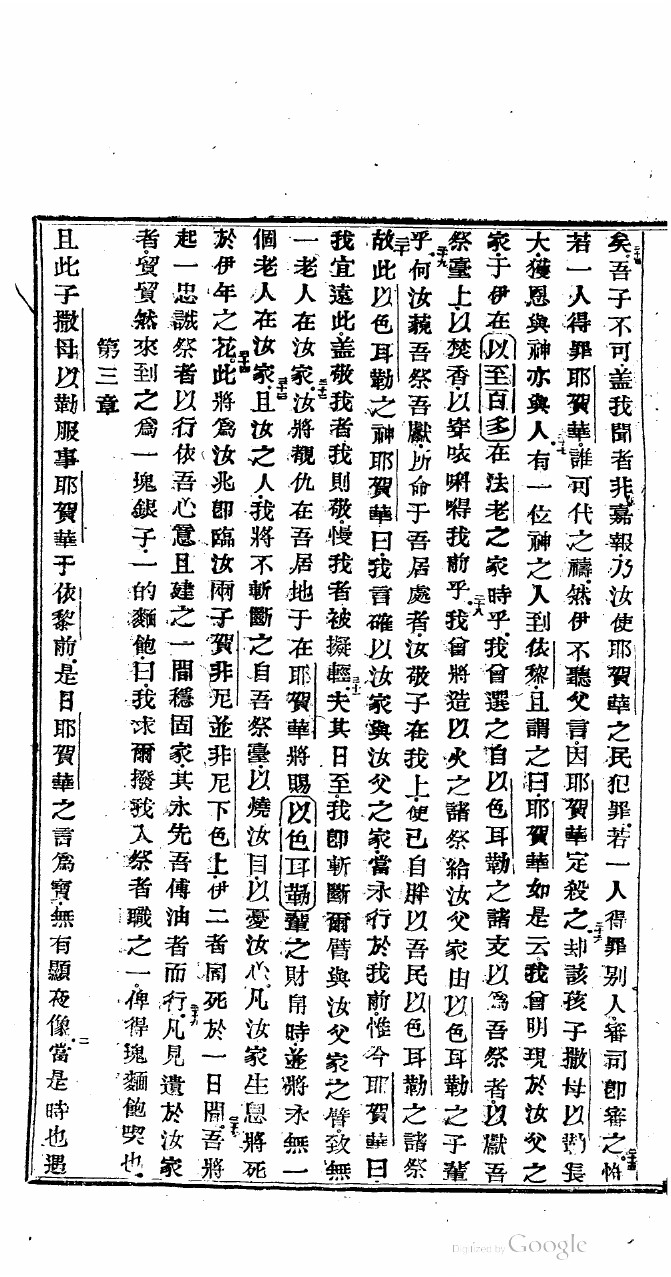 矣。吾子不可、盖我聞者非嘉報、乃汝使耶賀華之民犯罪。若一人得罪别人、審司卽審之、惟
若一人得罪耶賀華、誰可代之禱。然伊不聽父言、因耶賀華定殺之。却該孩子撒母以勒長
大、獲恩與神亦與人。有一位神之人到依黎、且謂之曰、耶賀華如是云、我曾明現於汝父之
家、于伊在以至百多在法老之家時乎。我曾選之自以色耳勒之諸支以爲吾祭者、以獻吾
祭臺上、以焚香、以穿咴唎嘚我前乎。我曾將造以火之諸祭給汝父家由以色耳勒之子輩
乎。何汝藐吾祭吾獻、所命于吾居處者、汝敬子在我上、使己自胖以吾民以色耳勒之諸祭
故此以色耳勒之神耶賀華曰、我言確以汝家與汝父之家、當永行於我前、惟今耶賀華曰、
我宜遠此、盖敬我者我則敬、慢我者被擬輕。夫其日至、我卽斬斷爾臂與汝父家之臂、致無
一老人在汝家。汝將覩仇在吾居地、于在耶賀華將賜以色耳勒輩之財帛時、並將永無一
個老人在汝家。且汝之人、我將不斬斷之自吾祭臺、以燒汝目、以憂汝心、凡汝家生息將死
於伊年之花。此將爲汝兆卽臨汝兩子賀非尼並非尼下色上、伊二者同死於一日間。吾將
起一忠誠祭者以行依吾心意、且建之一間穩固家、其永先吾傅油者而行。凡見遺於汝家
者、貿貿然來到之爲一塊銀子、一的麵飽、曰、我求爾撥我入祭者職之一、俾得塊麵飽喫也。
第三章
且此子撒母以勒服事耶賀華于依黎前。是日耶賀華之言爲寶、無有顯夜像。當是時也遇
二十四
二十五
二十六
二十七
二十八
二十九
三十
三十一
三十二
三十三
三十四
三十五
三十六
二
Digitized by Google